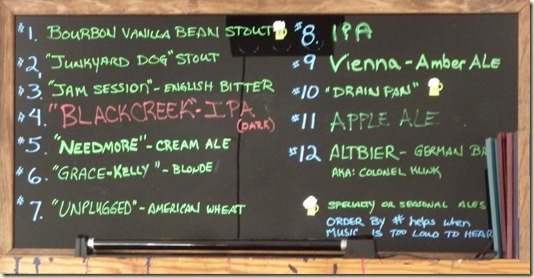 #1. BOURBON VANILLA BEAN STOUT
#2. "JUNKYARD DOG" STOUT
#3. "JAM SESSION" - ENGLISH BITTER
#4. "BLACKCREEK" - IPA
(DARK)
#5. "NEEDMORE" - CREAM ALE
#6. "GRACE-KELLY" - BLONDE
#7. "UNPLUGGED" - AMERICAN WHEAT
#8. IPA
#9 Vienna - Amber ALE
#10 "DRAIN PAN"
#11 APPLE ALE
#12 ALTBIER - GERMAN
AKA: COLONEL KLINK
SPECIALTY OR SEASONAL ALES
ORDER BY # helps when
MUSIC IS TOO LOUD TO HEAR